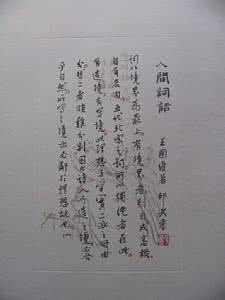 人間詞話
王國維著
詞以境界為最上有境界者則自成高格
自有名句五代北宋之詞所以獨絕者在此
有造境有寫境此理想與寫實二派之所由
分然二者頗難分別因大詩人所造之境必合
乎自然所寫之境亦必鄰於理想故也